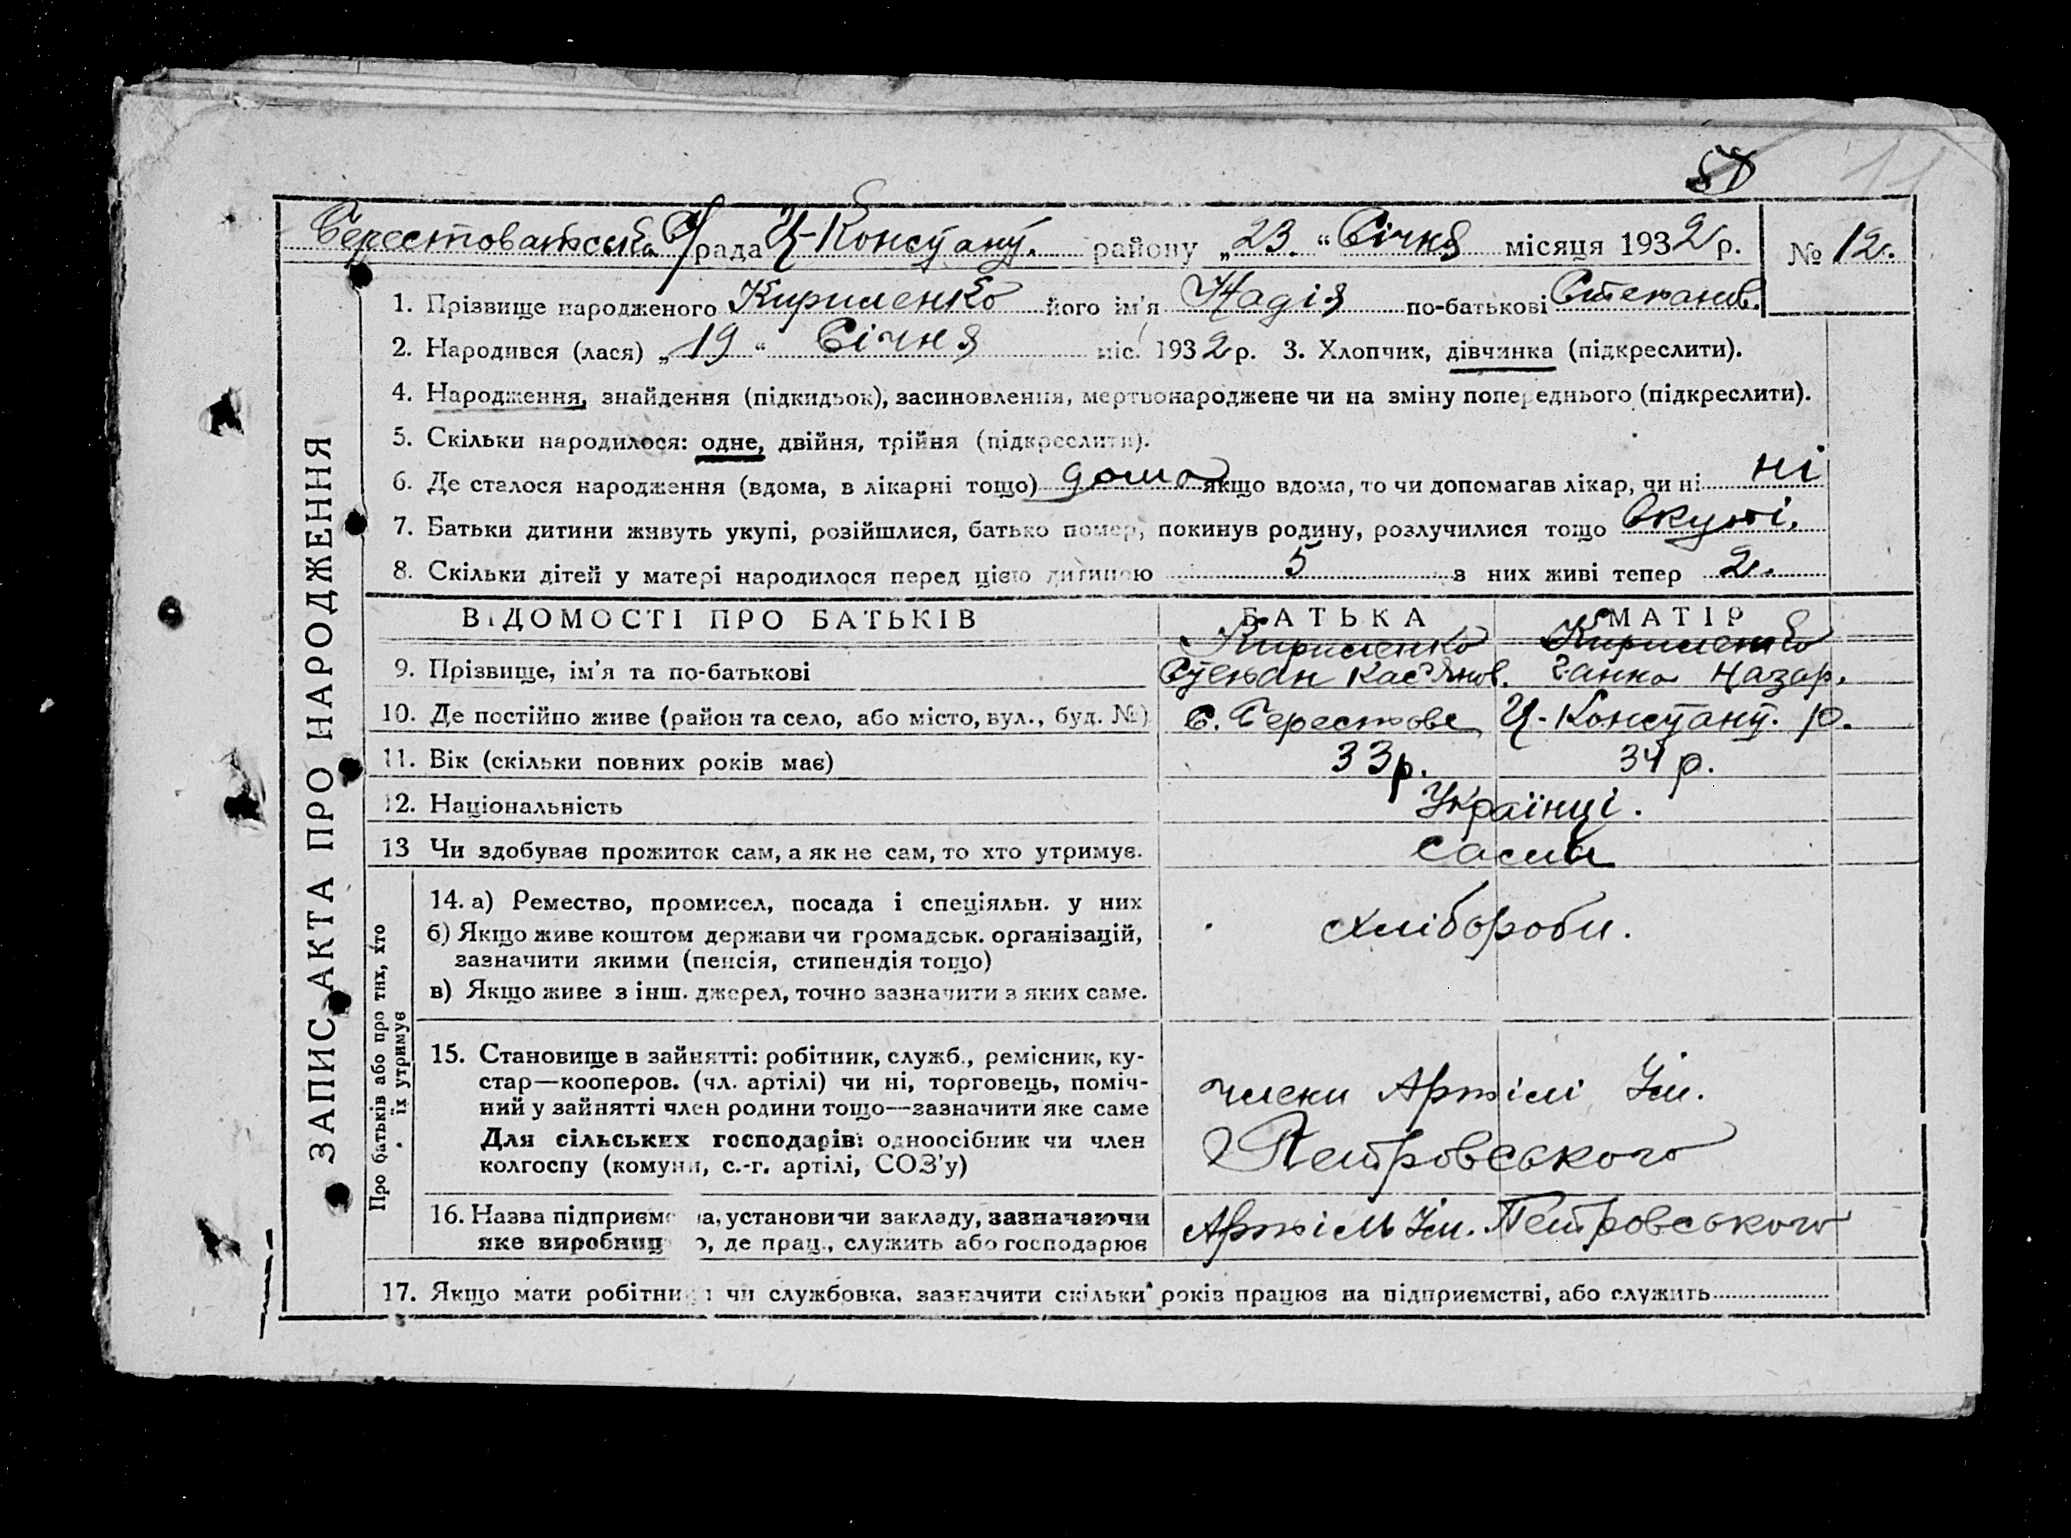 11
Берестоватська С/рада Ц-Констант. району „23.“ Січня місяця 1932 р. № 12.
ЗАПИС АКТА ПРО НАРОДЖЕННЯ
1. Прізвище народженого Кириленко його ім'я Надія по-батькові Степанів.
2. Народився (лася) „19“ Січня міс. 1932 р. 3. Хлопчик, дівчинка (підкреслити).
4. Народження, знайдення (підкидьок), засиновлення, мертвонароджене чи на зміну попереднього (підкреслити).
5. Скільки народилося: одне, двійня, трійня (підкреслити).
6. Де сталося народження (вдома, в лікарні тощо) дома якщо вдома, то чи допомагав лікар, чи ні ні
7. Батьки дитини живуть укупі, розійшлися, батько помер, покинув родину, розлучилися тощо Вкупі.
8. Скільки дітей у матері народилося перед цією дитиною 5 з них живі тепер 2.
ВІДОМОСТІ ПРО БАТЬКІВ БАТЬКА МАТІР
Кириленко Кириленко
9. Прізвище, ім'я та по-батькові Степан Кас'янов. Ганна Назар.
10. Де постійно живе (район та село, або місто, вул., буд. №) С. Берестове Ц-Констант. р.
11. Вік (скільки повних років має) 33 р. 34 р.
12. Національність Українці.
13 Чи здобуває прожиток сам, а як не сам, то хто утримує. Сами
Про батьків або про тих, хто їх утримує
14. а) Ремество, промисел, посада і спеціяльн. у них
б) Якщо живе коштом держави чи громадськ. організацій, хлібороби.
зазначити якими (пенсія, стипендія тощо)
в) Якщо живе з інш. джерел, точно зазначити з яких саме.
15. Становище в зайнятті: робітник, служб., ремісник, ку-
стар—кооперов. (чл. артілі) чи ні, торговець, поміч- члени Артілі Ім.
ний у зайнятті член родини тощо—зазначити яке саме
Для сільських господарів: одноосібник чи член Петровського
колгоспу (комуни, с.-г. артілі, СОЗ'у)
16. Назва підприємства, установи чи закладу, зазначаючи Артіль Ім. Петровського
яке виробництво, де прац., служить або господарює
17. Якщо мати робітниця чи службовка, зазначити скільки років працює на підприємстві, або служить